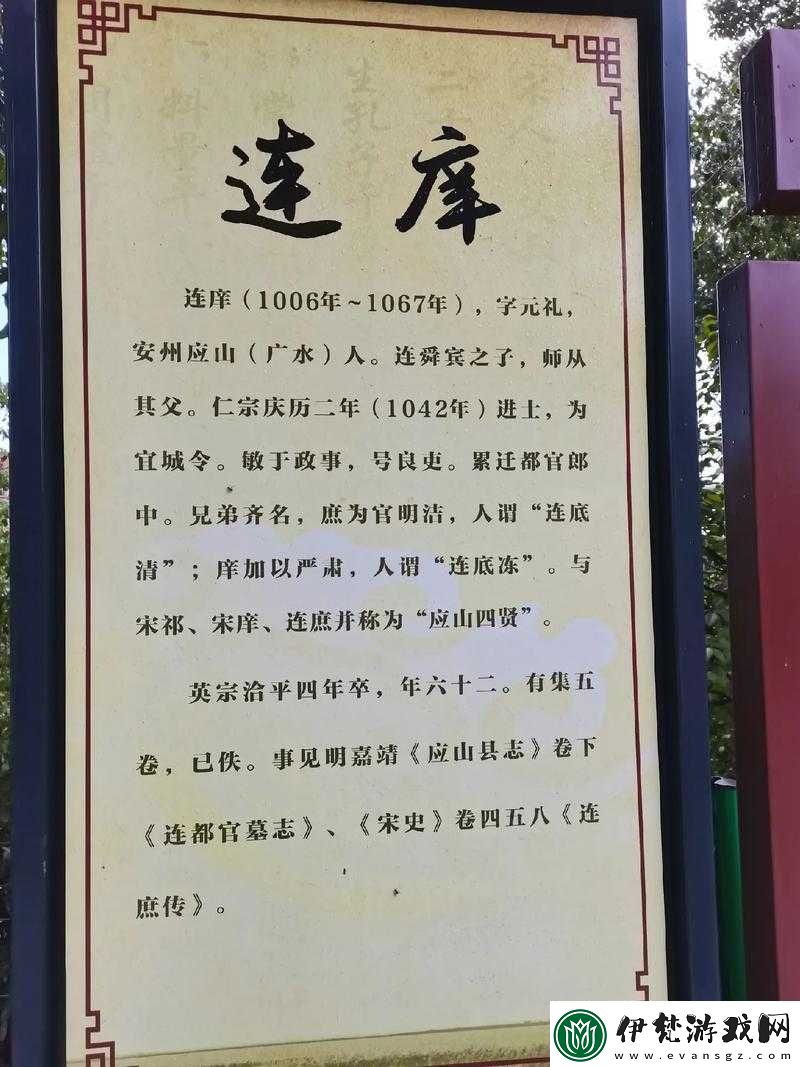 连庠
连庠（1006年~1067年），字元礼，
安州应山（广水）人。连舜宾之子，师从
其父。仁宗庆历二年（1042年）进士，为
宜城令。敏于政事，号良吏。累迁都官郎
中。兄弟齐名，庶为官明洁，人谓“连底
清”；庠加以严肃，人谓“连底冻”。与
宋祁、宋庠、连庶并称为“应山四贤”。
英宗治平四年卒，年六十二。有集五
卷，已佚。事见明嘉靖《应山县志》卷下
《连都官墓志》、《宋史》卷四五八《连
庶传》。
伊梵游戏网
www.evansgz.com